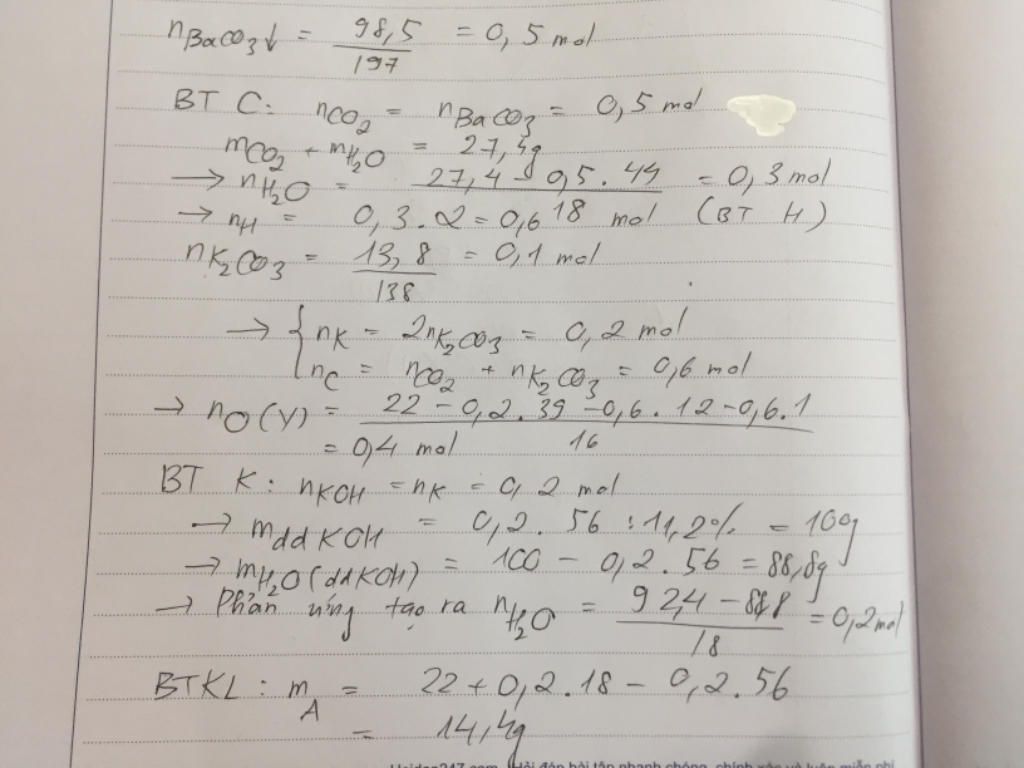 nBaCO3↓ = 98,5/197 = 0,5 mol
BT C: nCO2 = nBaCO3 = 0,5 mol
mCO2 + mH2O = 27,4g
→ nH2O = (27,4 - 0,5.44)/18 = 0,3 mol
→ nH = 0,3.2 = 0,6 mol (BT H)
nK2CO3 = 13,8/138 = 0,1 mol
→ { nK = 2nK2CO3 = 0,2 mol
nC = nCO2 + nK2CO3 = 0,6 mol
→ nO(Y) = (22 - 0,2.39 - 0,6.12 - 0,6.1)/16
= 0,4 mol
BT K: nKOH = nK = 0,2 mol
→ mddKOH = 0,2.56 : 11,2% = 100g
→ mH2O(ddKOH) = 100 - 0,2.56 = 88,8g
→ Phản ứng tạo ra nH2O = (92,4 - 88,8)/18 = 0,2 mol
BTKL: mA = 22 + 0,2.18 - 0,2.56
= 14,4g
Hoidap247.com Hỏi đáp bài tập nhanh chóng, chính xác và luôn miễn phí